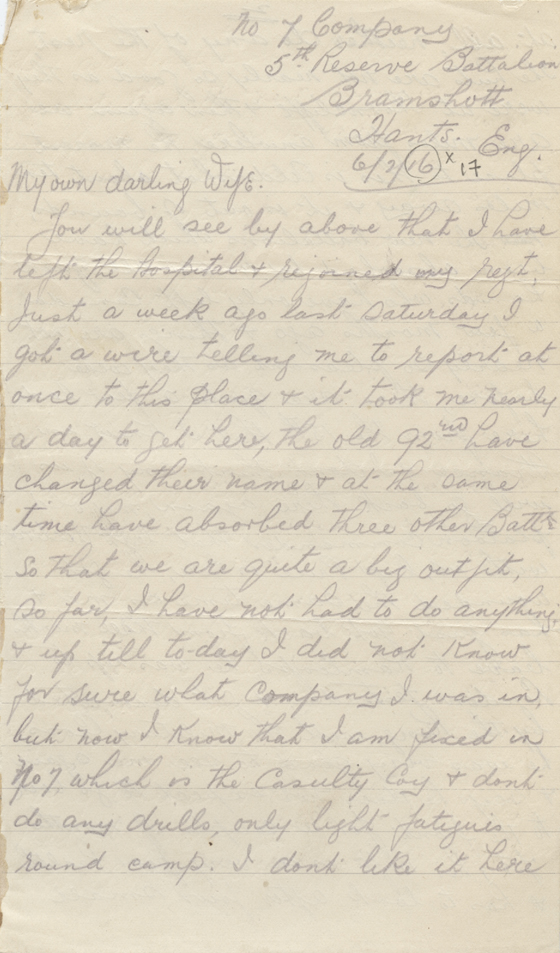 No 7 Company
5th Reserve Battalion
Bramshott
Hants. Eng.
6/2/16 x 17
My own darling Wife.
You will see by above that I have
left the Hospital & rejoined my regt,
Just a week ago last Saturday I
got a wire telling me to report at
once to this place & it took me nearly
a day to get here, the old 92nd have
changed their name & at the same
time have absorbed three other Batt's
so that we are quite a big outfit,
so far, I have not had to do anything,
& up till to-day I did not know
for sure what Company I was in,
but now I know that I am fixed in
No 7 which is the Casulty Coy & dont
do any drills, only light fatigues
round camp. I dont like it here